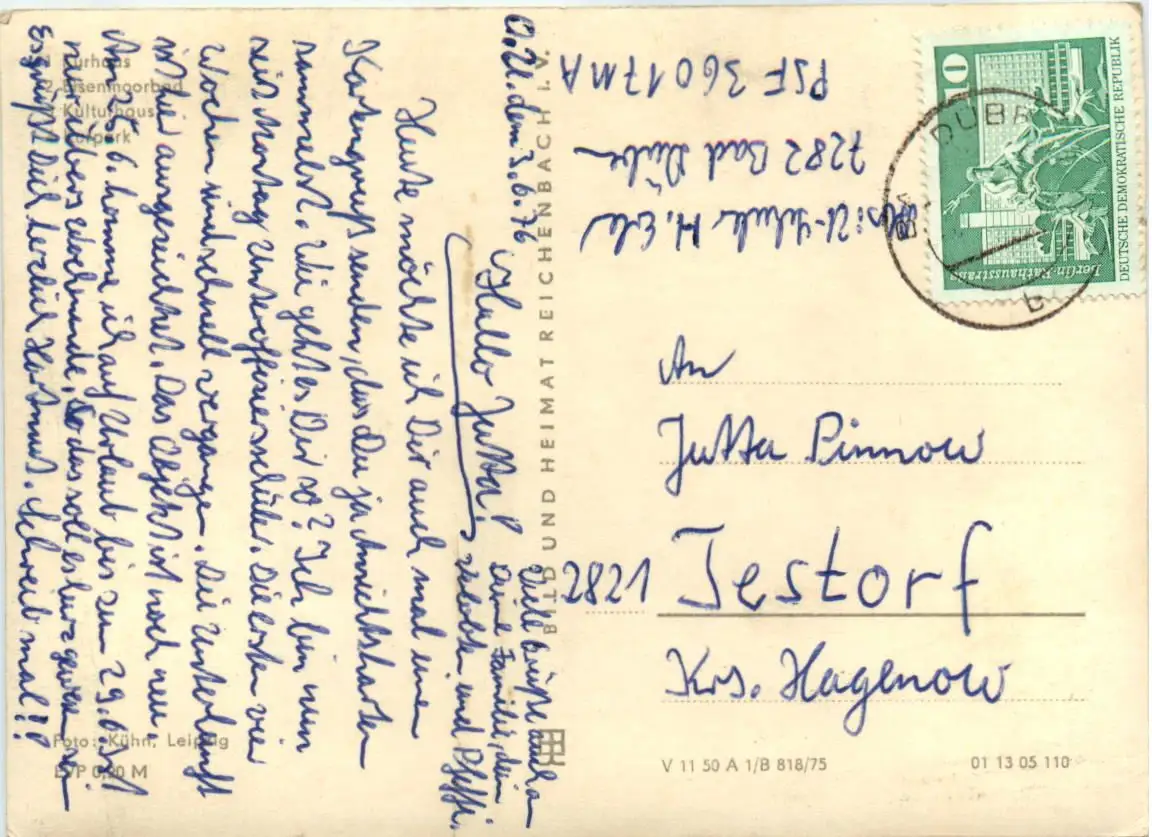 O.U. dem 3.6.76
Hallo Jutta!
Heute möchte ich Dir auch mal einen
Kartengruß senden, das Du ja Ansichtskarten
sammelst. Wie geht es Dir so? Ich bin nun
seit Montag Unteroffiziersschüler. Die ersten vier
Wochen sind schnell vergangen. Die Unterkunft
ist hier ausgezeichnet. Das Objekt ist noch neu
Am 25.6. komme ich auf Urlaub bis zum 29.6.
übers Wochenende. So das soll es kurz gewesen
Es grüßt Dich herzlich Hartmut. Schreib mal!
Grüße auch
Deine Familie, dein
und Pfiffi.
1 Kurhaus
2 Eisenmoorbad
Kulturhaus
Kurpark
Foto: Kühn, Leipzig
EVP 0,20 M
BILD UND HEIMAT REICHENBACH I. V.
Abs: U-Schüler H.
7282 Bad Düben
PSF 36017 MA
10
DEUTSCHE DEMOKRATISCHE REPUBLIK
Berlin-Rathausstrasse
DÜB
b
An
Jutta Pinnow
2821 Testorf
Krs. Hagenow
V 11 50 A 1/B 818/75
01 13 05 110